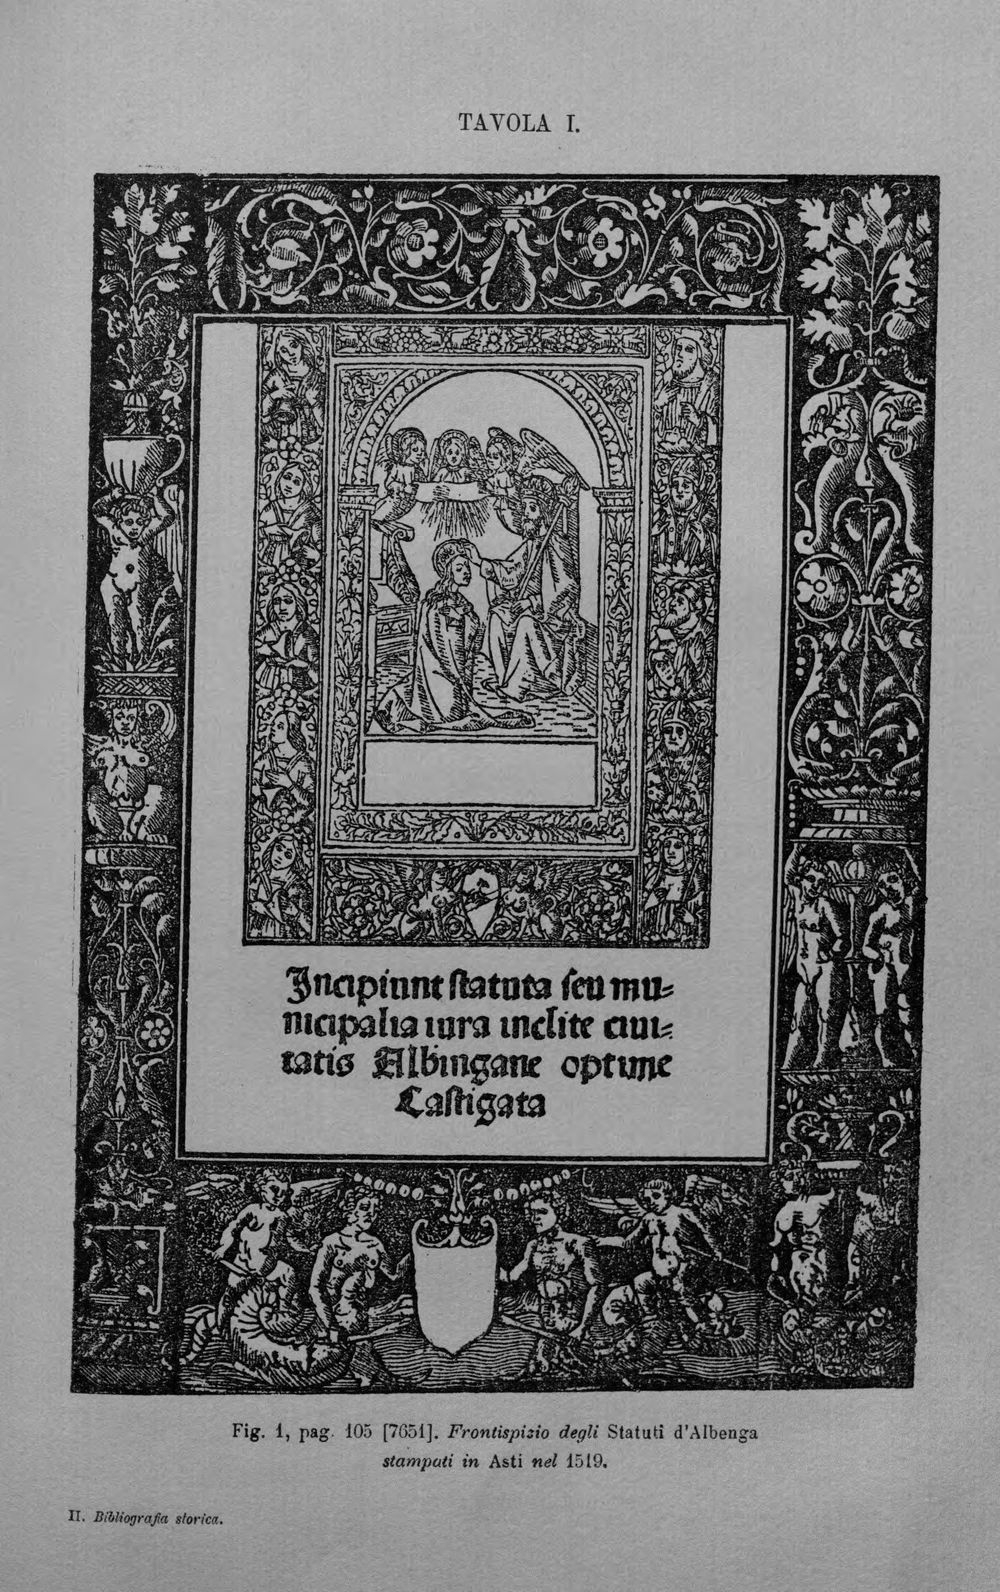 TAVOLA I.
Incipiunt statuta seu mu⸗
nicipalia iura inclite ciui⸗
tatis Albingane optime
Castigata
Fig. 1, pag. 105 [7651]. Frontispizio degli Statuti d'Albenga
stampati in Asti nel 1519.
II. Bibliografia storica.